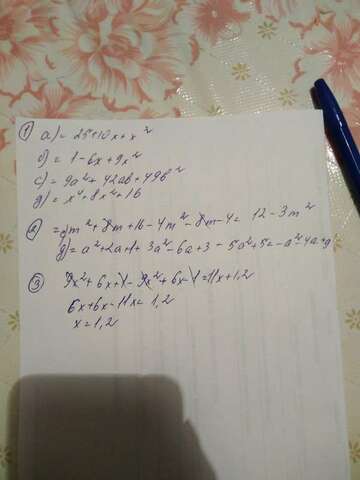 ① a) = 25+10x+x²
б) = 1-6x+9x²
c) = 9a²+42ab+49b²
g) = x⁴+8x²+16
② = m²+8m+16-4m²-8m-4= 12-3m²
g) = a²+2a+1+3a²-6a+3-5a²+5=-a²-4a+9
③ 9x²+6x+1-9x²+6x-1=11x+1,2
6x+6x-11x=1,2
x=1,2